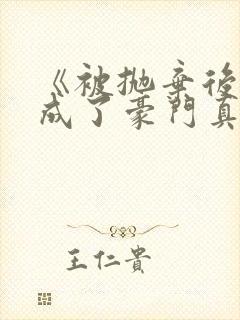 《被抛弃後
成了豪門真
王仁貴